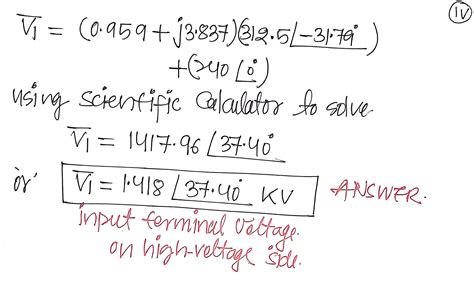 (iv)
V̄₁ = (0.959 + j3.837)(312.5∠-31.79°)
+(240∠0°)
using scientific calculator to solve
V̄₁ = 1417.96∠37.40°
or V̄₁ = 1.418∠37.40° KV ANSWER.
input terminal voltage
on high-voltage side.